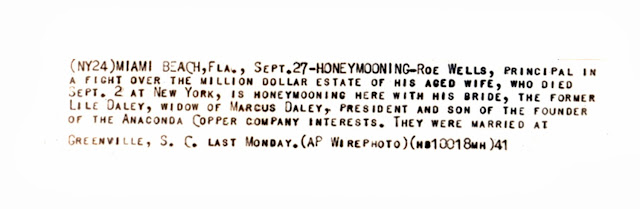 (NY24)MIAMI BEACH,FLA., SEPT.27-HONEYMOONING-ROE WELLS, PRINCIPAL IN
A FIGHT OVER THE MILLION DOLLAR ESTATE OF HIS AGED WIFE, WHO DIED
SEPT. 2 AT NEW YORK, IS HONEYMOONING HERE WITH HIS BRIDE, THE FORMER
LILE DALEY, WIDOW OF MARCUS DALEY, PRESIDENT AND SON OF THE FOUNDER
OF THE ANACONDA COPPER COMPANY INTERESTS. THEY WERE MARRIED AT
GREENVILLE, S. C. LAST MONDAY.(AP WIREPHOTO)(HB10018MH)41